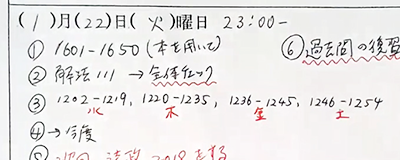 (1)月(22)日(火)曜日 23:00-
① 1601-1650 (本を用いて)
⑥ 過去問の復習
② 解法111 → 全体チェック
③ 1202-1219, 1220-1235, 1236-1245, 1246-1254
水 木 金 土
④ → 今度
⑤ 法政 2018